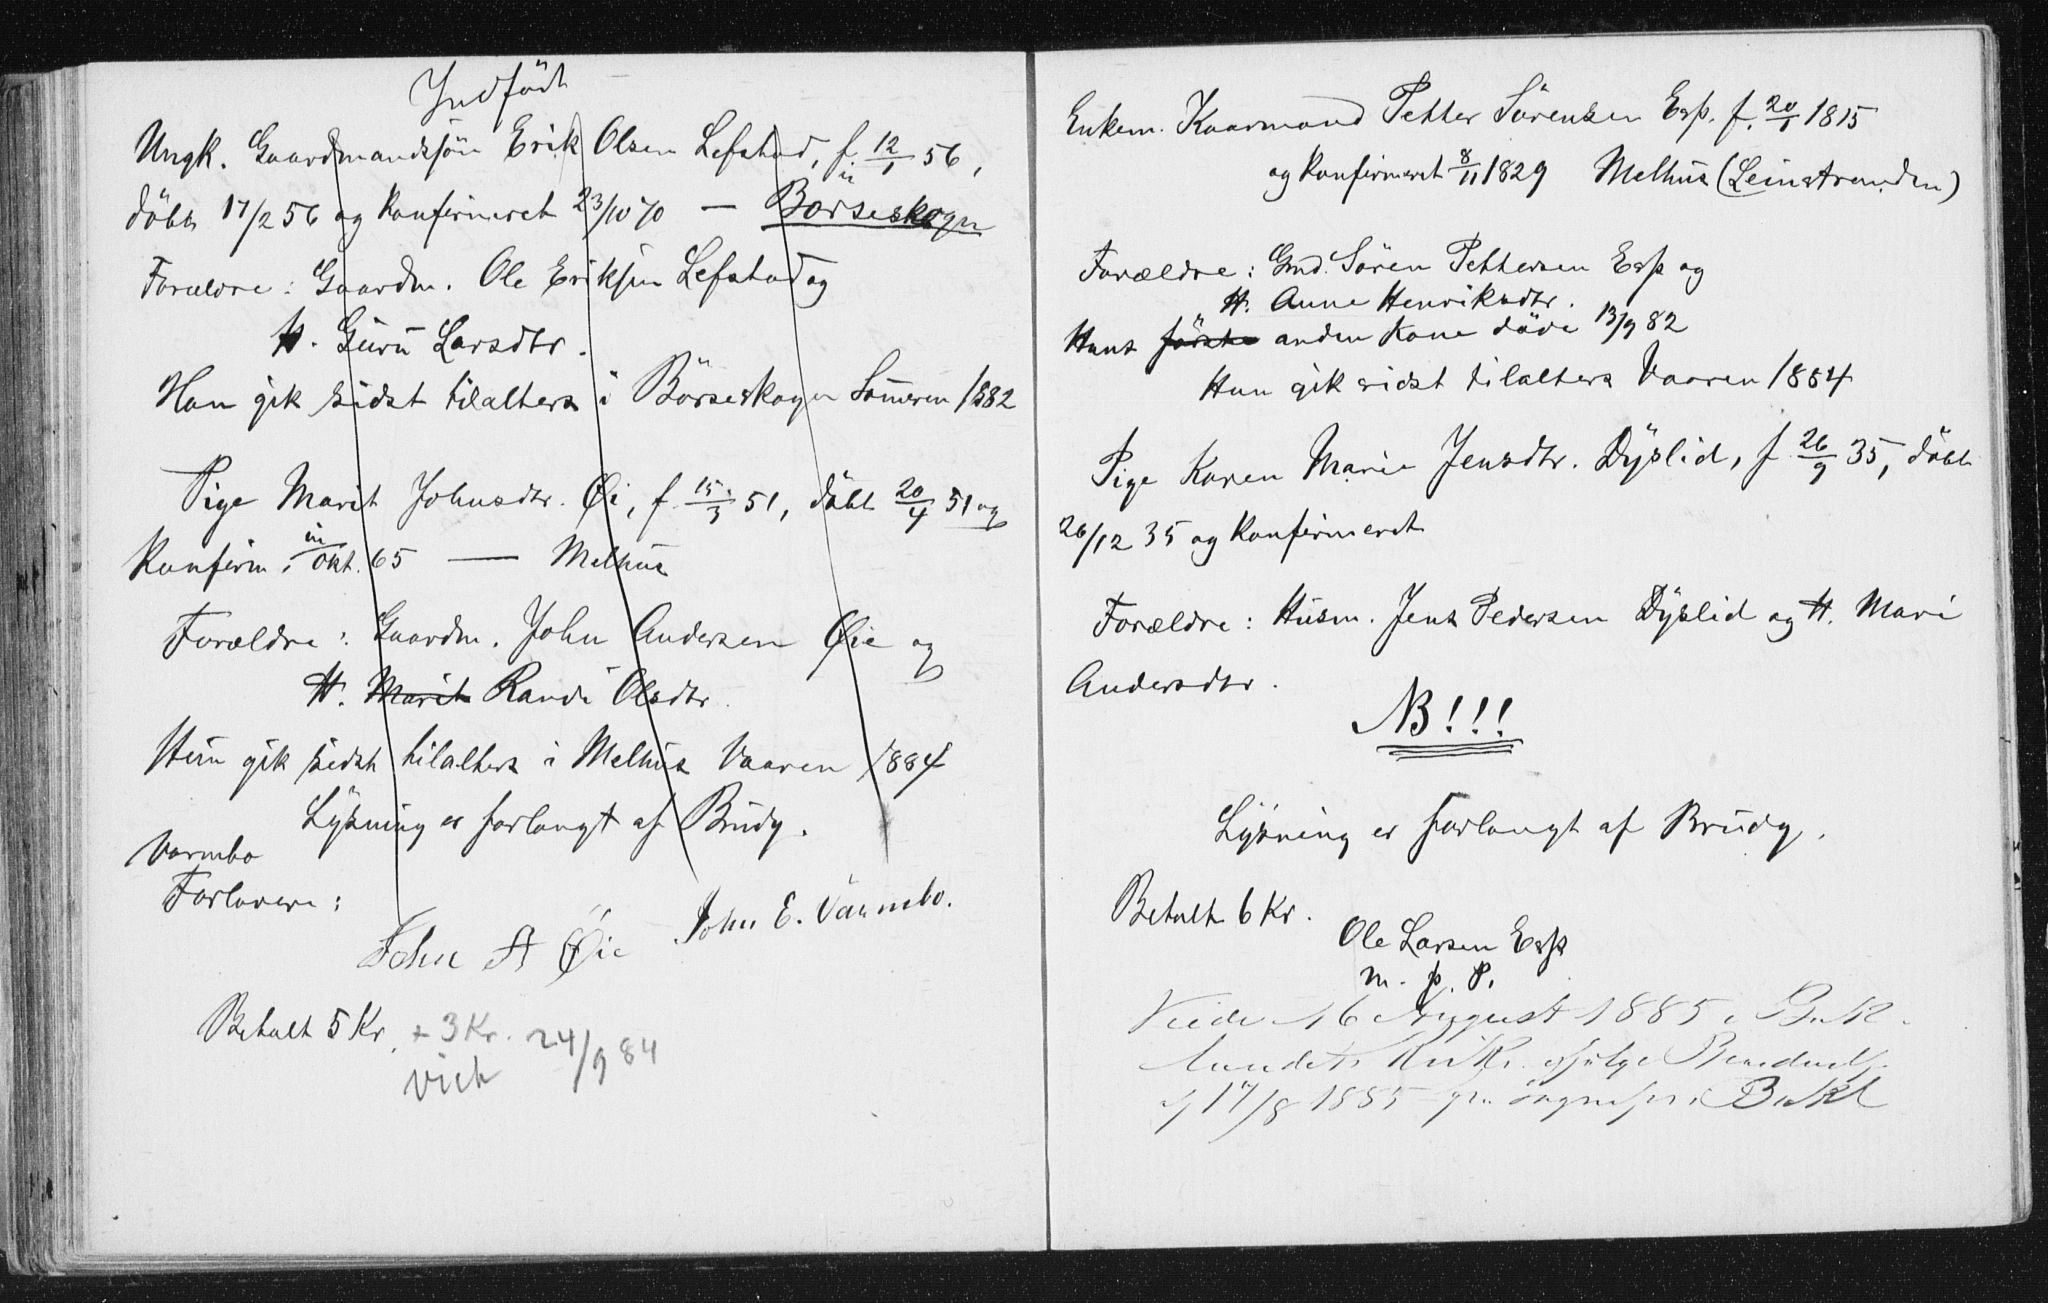 Indført
Ungk. Gaardmandssön Erik Olsen Lefstad, f. 12/1 56,
döbt 17/2 56 og konfirmeret 23/10 70 — Börseskogn
Forældre: Gaardm. Ole Eriksen Lefstad og
H. Guru Larsdtr.
Han gik sidst tilalters i Börseskogn Sommeren 1882
Pige Marit Johnsdtr. Øi, f. 15/3 51, döbt 20/4 51 og
konfirm. in okt. 65 — Melhus
Forældre: Gaardm. John Andersen Øie og
H. Marit Randi Olsdtr.
Hun gik sidst tilalters i Melhus Vaaren 1884
Lysning er forlangt af Brudg.
Varmbo
Forlovere:
John A Øie John E. Varmbo.
Betalt 5 Kr. + 3 Kr. 24/9 84
viet
Enkem. Kaarmand Petter Sörensen Esp. f. 20/1 1815
og konfirmeret 8/11 1829 Melhus (Leinstranden)
Forældre: Gmd. Sören Pettersen Esp og
H. Anne Henriksdtr.
Hans förste anden Kone döde 13/9 82
Han gik sidst tilalters Vaaren 1884
Pige Karen Marie Jensdtr. Dyslid, f. 26/9 35, döbt
26/12 35 og konfirmeret
Forældre: Husm. Jens Pedersen Dyslid og H. Mari
Andersdtr.
NB!!!
Lysning er forlangt af Brudg.
Betalt 6 Kr.
Ole Larsen Esp
m. p. P.
Viede 16 August 1885 i Buk
lundets Kirke ifölge
af 17/8 1885 fra sogneprest i